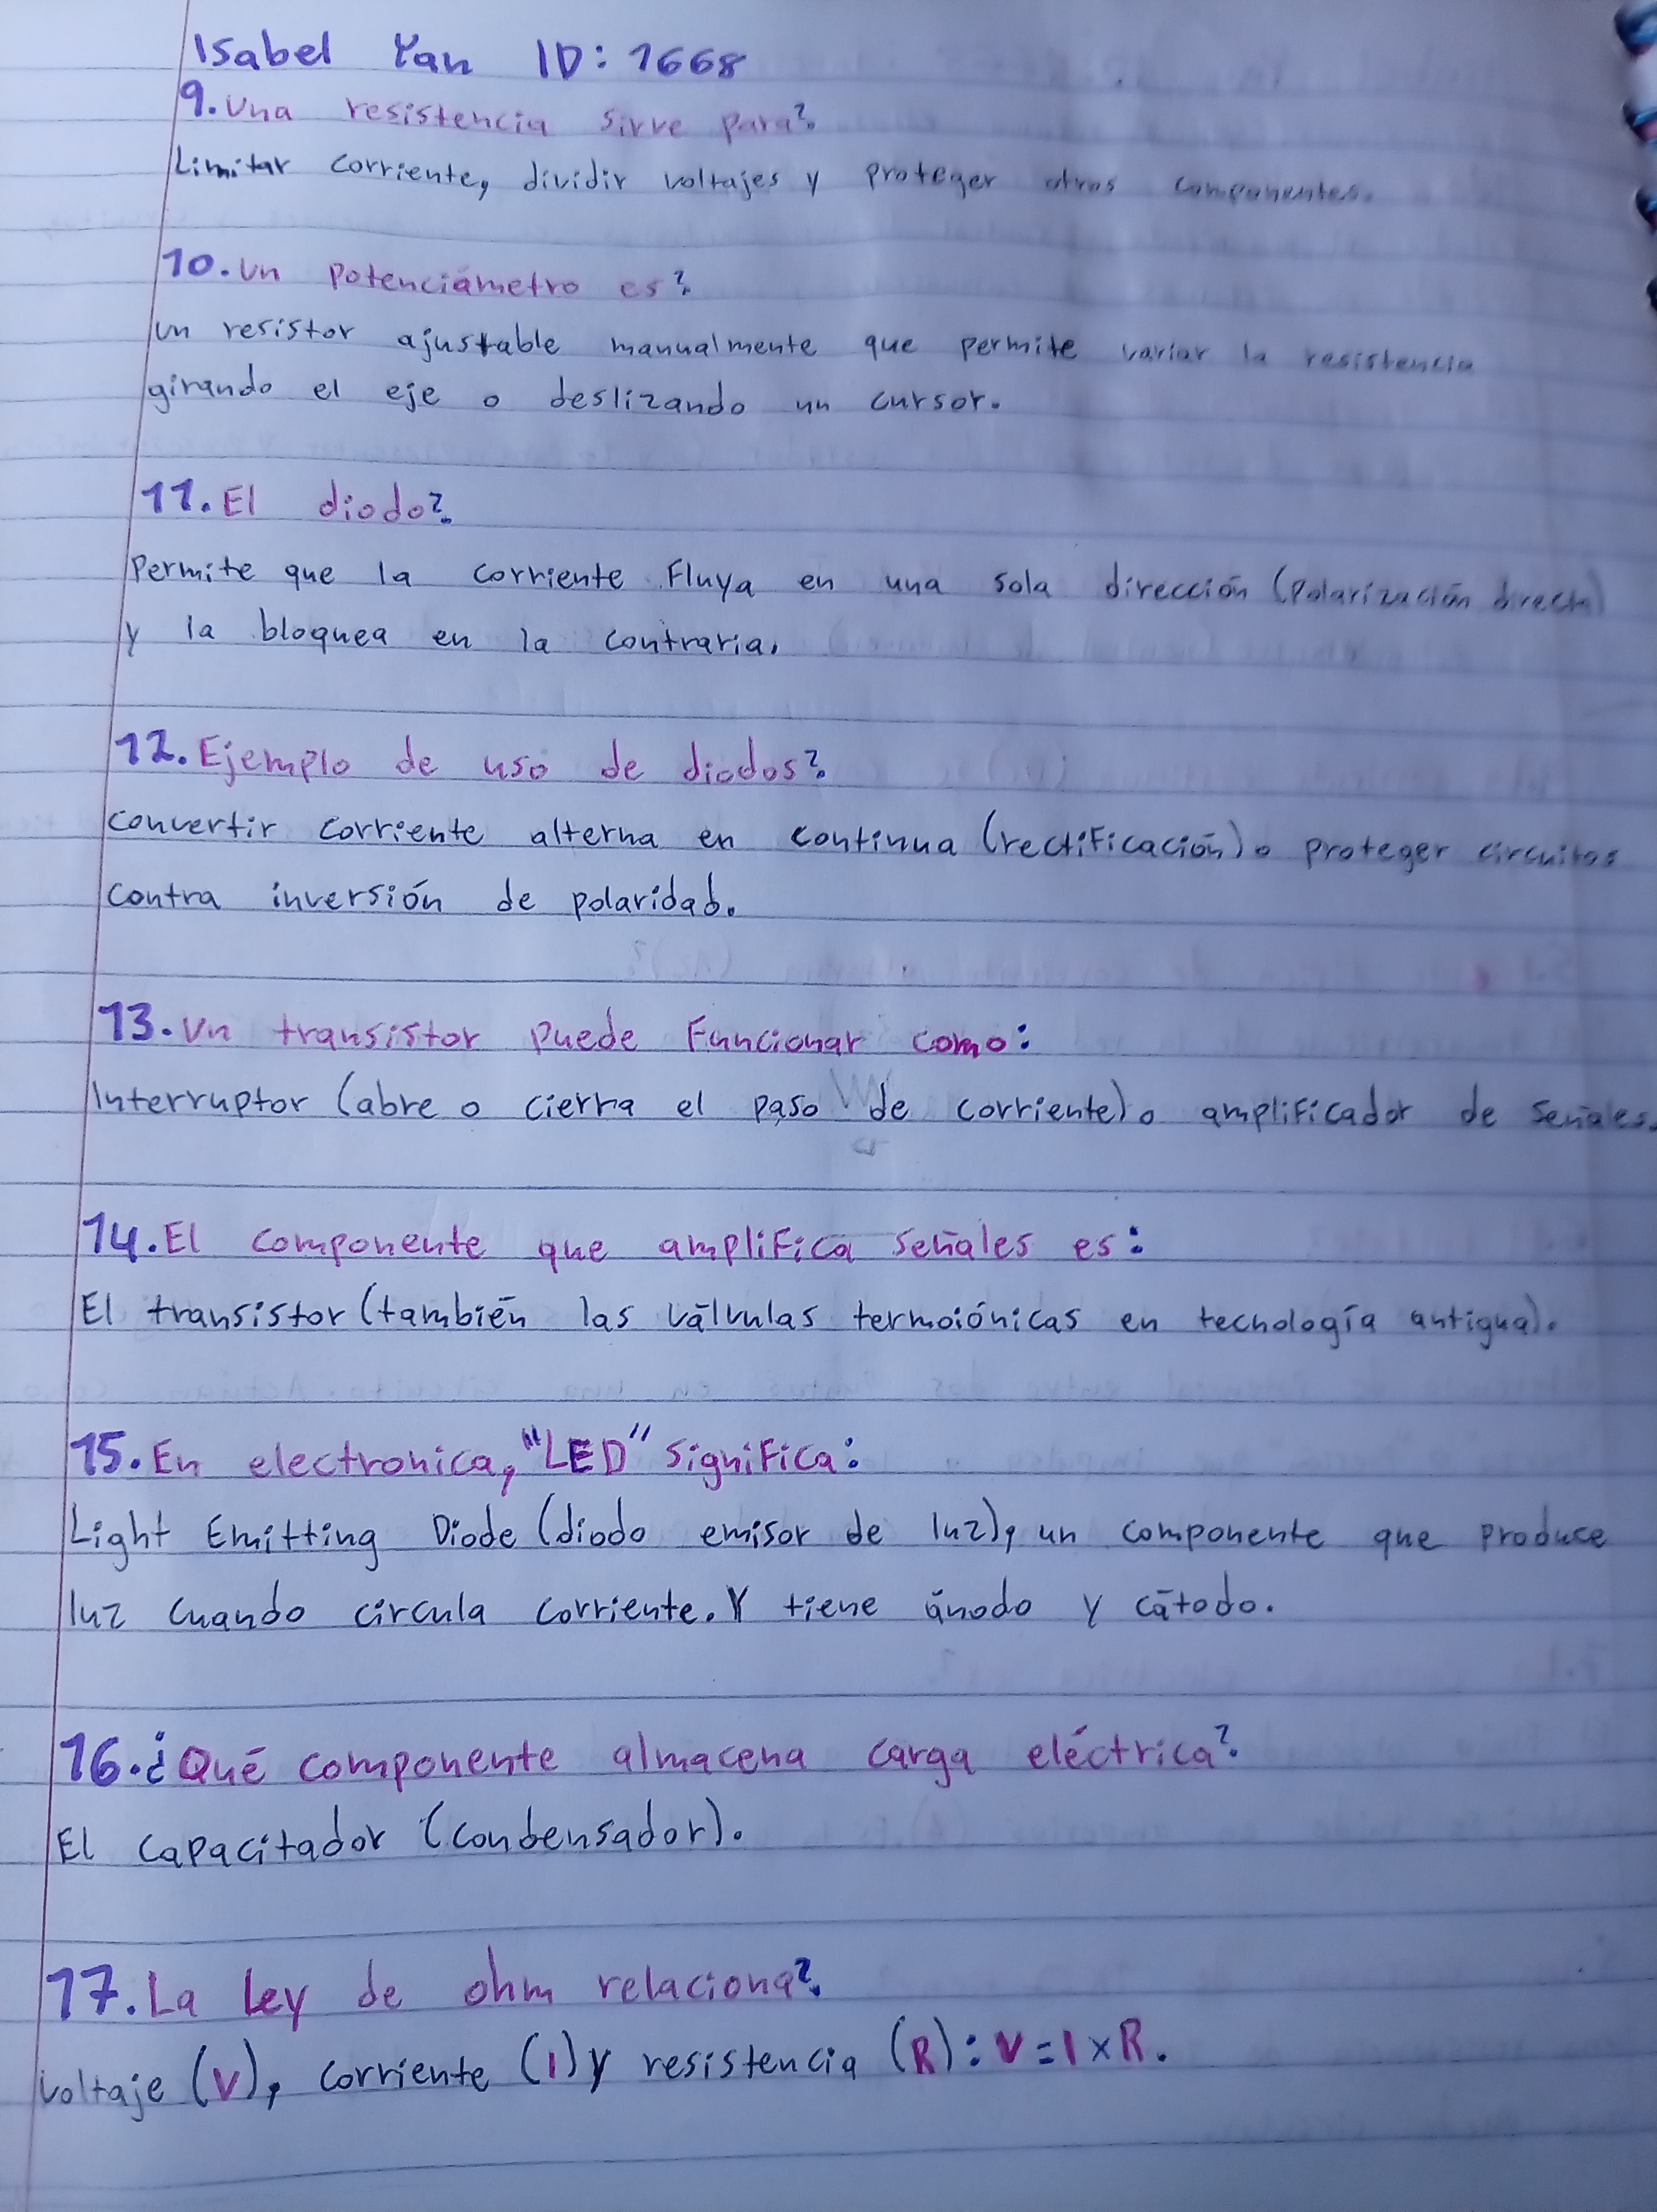 Isabel Yan ID: 1668
9. Una resistencia sirve para?
Limitar corriente, dividir voltajes y proteger otros componentes.
10. Un Potenciámetro es?
Un resistor ajustable manualmente que permite variar la resistencia
girando el eje o deslizando un cursor.
11. El diodo?
Permite que la corriente Fluya en una sola dirección (Polarización directa)
y la bloquea en la contraria.
12. Ejemplo de uso de diodos?
Convertir corriente alterna en continua (rectificación) o proteger circuitos
contra inversión de polaridad.
13. Un transistor Puede Funcionar como:
Interruptor (abre o cierra el paso de corriente) o amplificador de señales.
14. El componente que amplifica señales es:
El transistor (también las válvulas termoiónicas en tecnología antigua).
15. En electronica, "LED" significa:
Light Emitting Diode (diodo emisor de luz), un componente que produce
luz cuando circula corriente. Y tiene ánodo y cátodo.
16. ¿Qué componente almacena carga eléctrica?
El capacitador (condensador).
17. La Ley de ohm relaciona?
Voltaje (V), corriente (I) y resistencia (R): V = I x R.